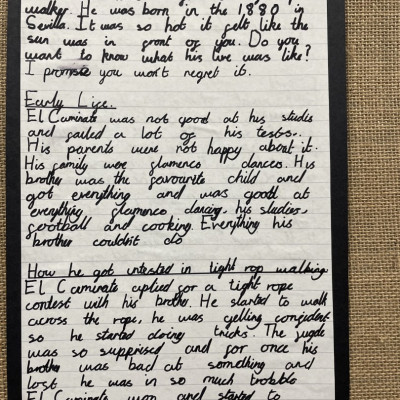 walker. He was born in the 1880 in
Sevilla. It was so hot it felt like the
sun was in front of you. Do you
want to know what his live was like?
I promise you won't regret it.
Early Lige.
El Caminate was not good at his studis
and gailed a lot og his tests..
His parents were not happy about it.
His gamily were glamenco dances. His
brother was the gavourite child and
got everything and was good at
everything glamenco dancing, his studies,
gootball and cooking. Everything his
brother couldn't do
How he got intested in tight rop walking
El Caminate aplied gor a tight rope
contest with his brother. He started to walk
across the rope, he was gelling congident
so he started doing tricks. The jugde
was so supprised and gor once his
brother was bad at something and
lost he was in so much trobble
El Caminate won and started to